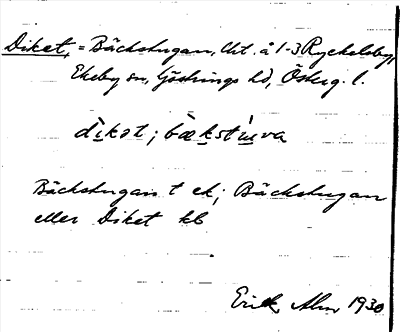 Diket, = Bäckstugan, lht. å 1-3 Ryckelsby,
Ekeby sn, Göstrings hd, Österg. l.
dìkət; bækstu̇va
Bäckstugan t ek; Bäckstugan
eller Diket kb
Erik Alm 1930